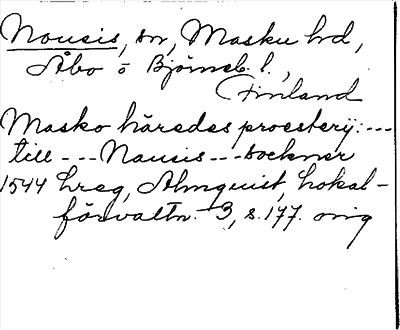 Nousis, sn, Masku hd,
Åbo o Björneb. l.,
Finland
Masko häredes proestery: ---
till --- Nausis --- sockner
1544 hreg, Almquist, Lokal-
förvaltn. 3, s. 177. orig